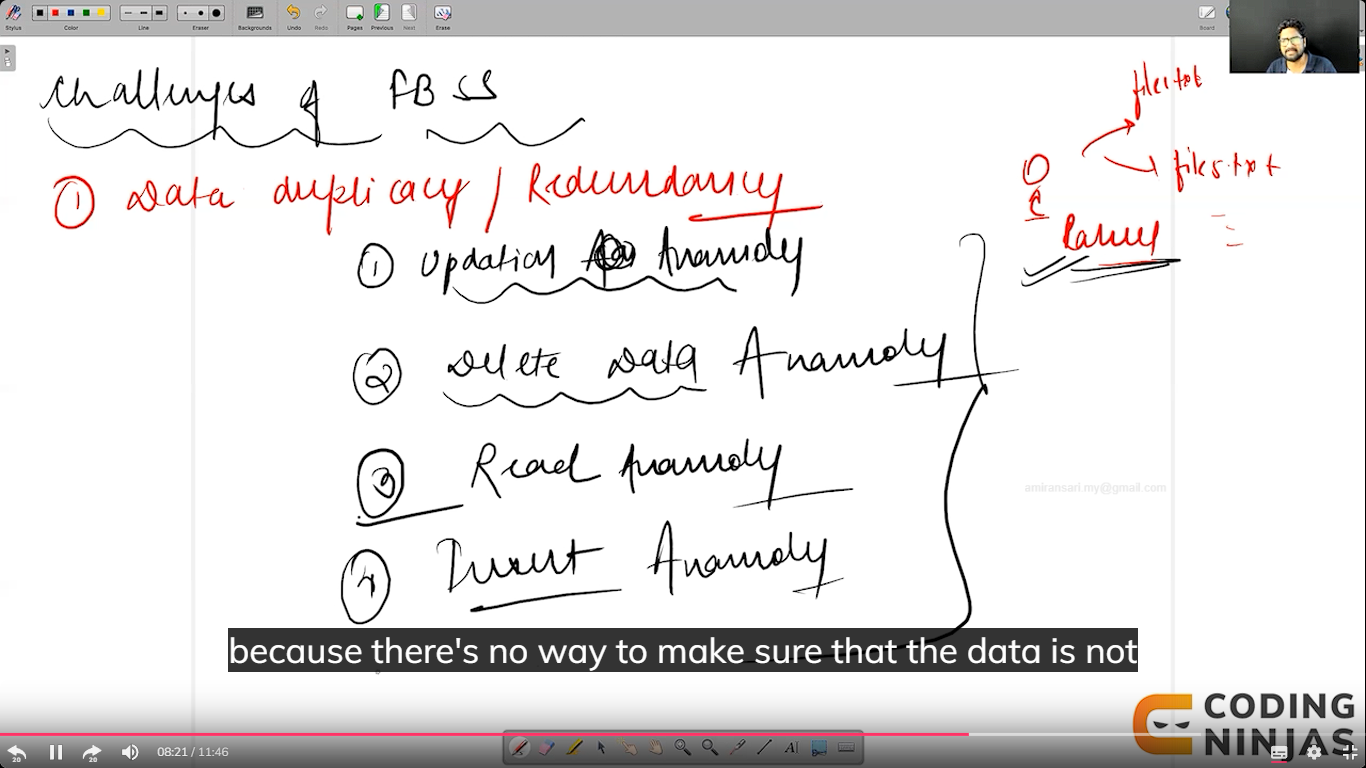 Stylus Color Line Eraser Backgrounds Undo Redo Pages Previous Next Erase Board
Challenges of FBSS
① Data duplicacy / Redundancy
① Updation Anamoly
② Delete Data Anamoly
③ Read Anamoly
④ Insert Anamoly
file1.txt
files.txt
C
amiransari.my@gmail.com
because there's no way to make sure that the data is not
CODING
NINJAS
20 20 08:21 / 11:46